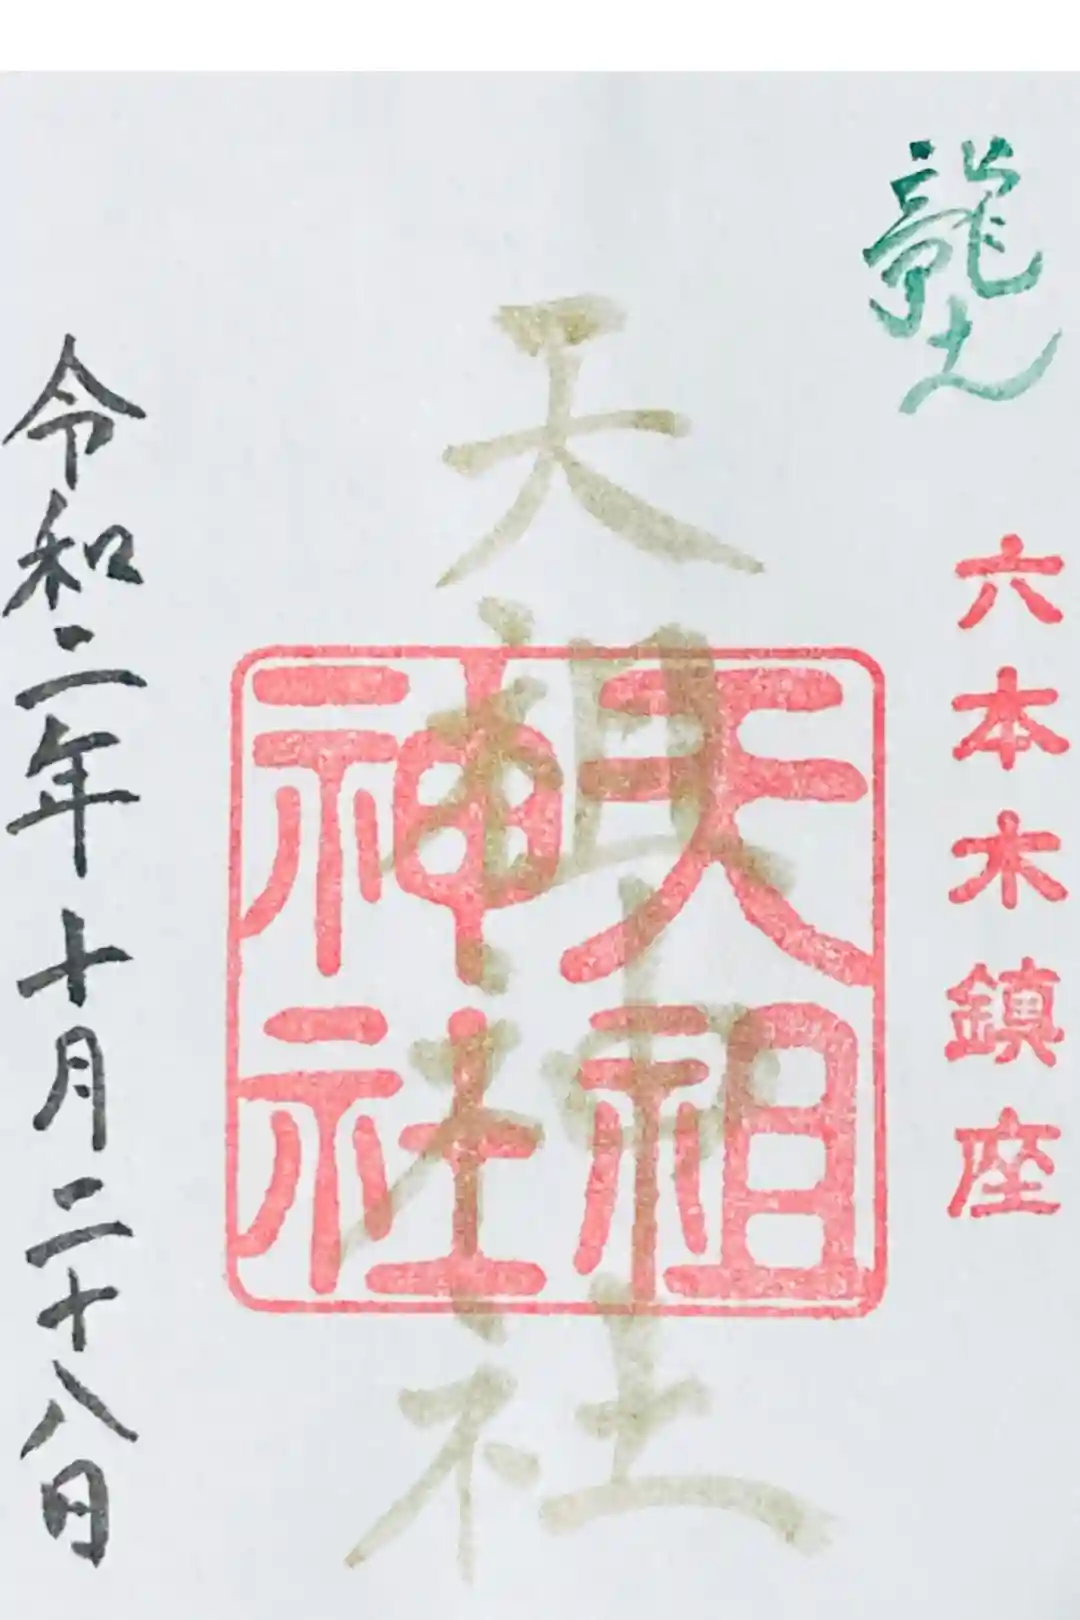 龍土
六本木鎮座
天祖神社
天祖
神社
令和二年十月二十八日